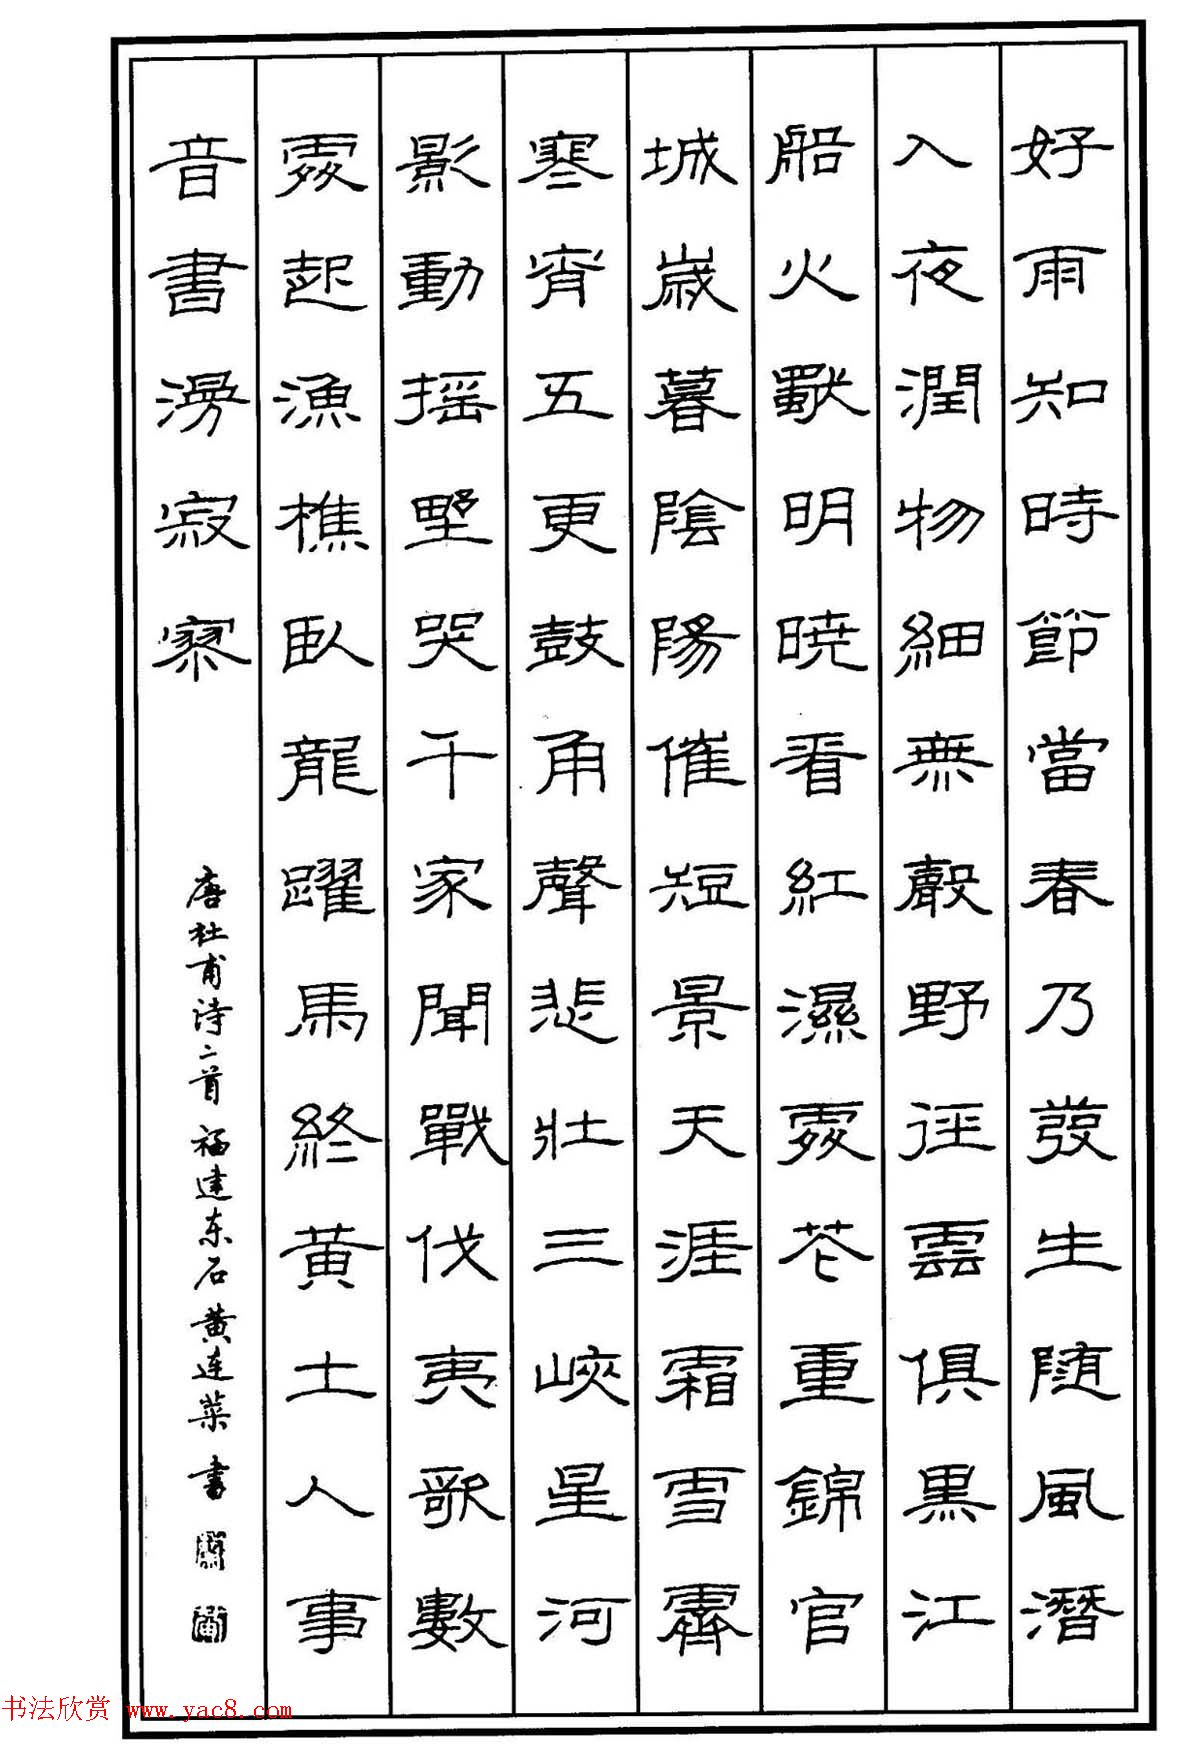 好雨知時節當春乃發生随風潛
入夜潤物細無聲野徑雲俱黑江
船火獨明曉看紅濕處花重錦官
城歲暮陰陽催短景天涯霜雪霽
寒宵五更鼓角聲悲壯三峽星河
影動摇野哭千家聞戰伐夷歌數
處起漁樵臥龍躍馬終黄土人事
音書漫寂寥
唐杜甫诗二首 福建东石黄连菜书
书法欣赏 www.yac8.com